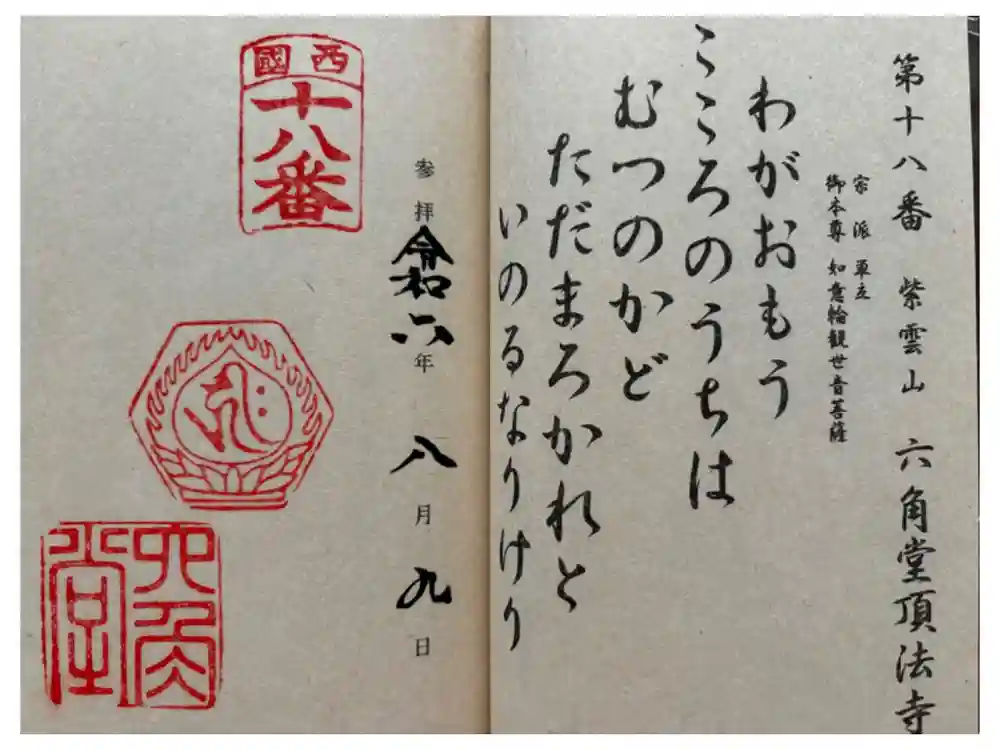 第十八番 紫雲山 六角堂頂法寺
宗派 単立
御本尊 如意輪観世音菩薩
わがおもう
こころのうちは
むつのかど
ただまろかれと
いのるなりけり
参拝 令和六年 八月九日
西國
十八番
六角
堂